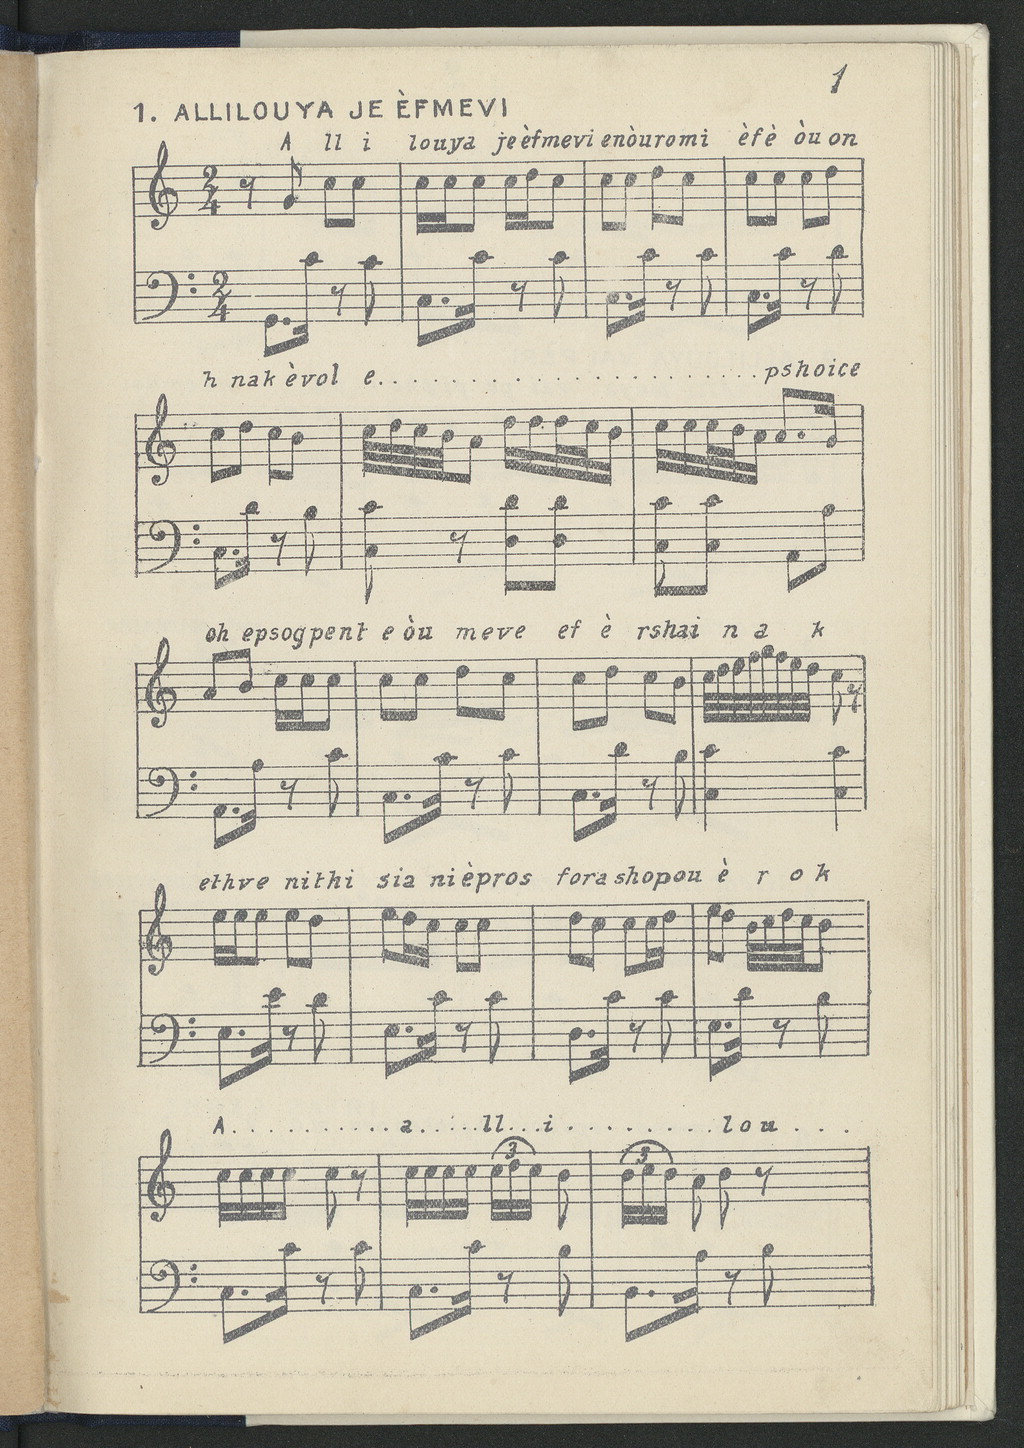 1
1. ALLILOUYA JE ÈFMEVI
A ll i louya jeèfmevi enòuromi èfè òu on
h nak èvol e....................... pshoice
oh epsogpent e òu meve ef è rshai n a k
ethve nithi sia nièpros fora shopou è r o k
A.......... a.....ll...i.........lou...
2
4
2
4
3
3